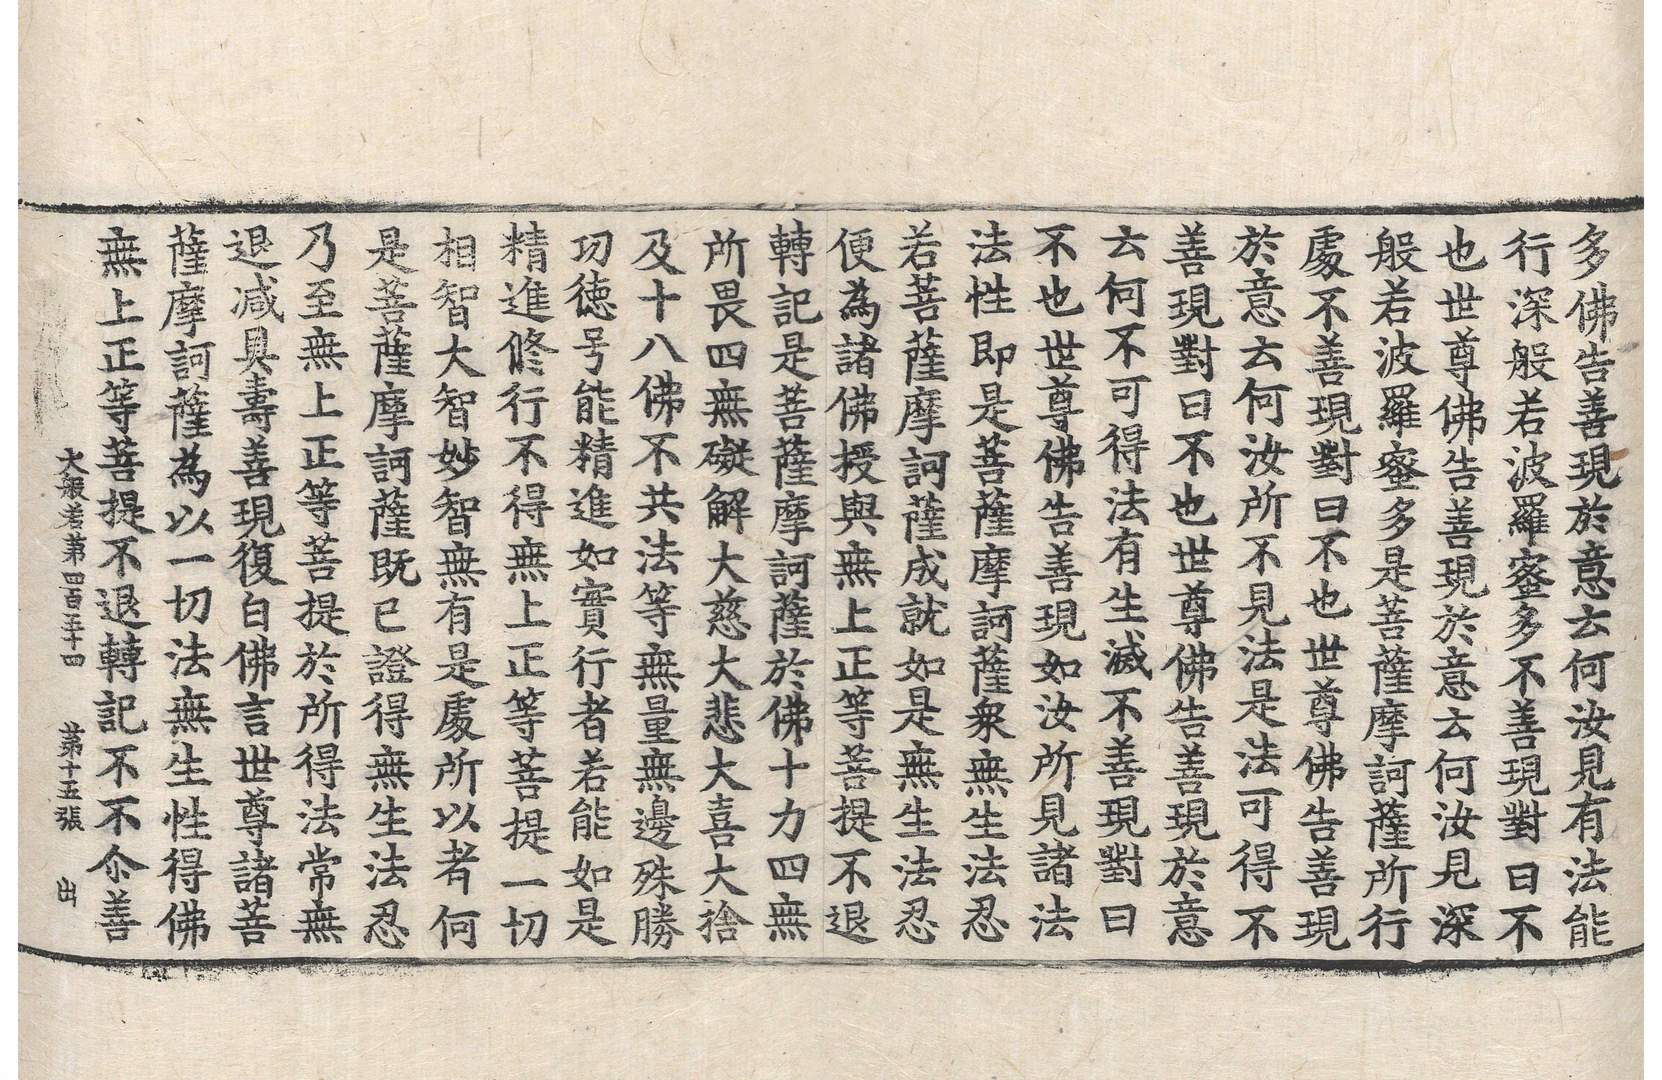 多佛告善現於意云何汝見有法能
行深般若波羅蜜多不善現對曰不
也世尊佛告善現於意云何汝見深
般若波羅蜜多是菩薩摩訶薩所行
處不善現對曰不也世尊佛告善現
於意云何汝所不見法是法可得不
善現對曰不也世尊佛告善現於意
云何不可得法有生滅不善現對曰
不也世尊佛告善現如汝所見諸法
法性即是菩薩摩訶薩衆無生法忍
若菩薩摩訶薩成就如是無生法忍
便為諸佛授與無上正等菩提不退
轉記是菩薩摩訶薩於佛十力四無
所畏四無礙解大慈大悲大喜大捨
及十八佛不共法等無量無邊殊勝
功德号能精進如實行者若能如是
精進修行不得無上正等菩提一切
相智大智妙智無有是處所以者何
是菩薩摩訶薩既已證得無生法忍
乃至無上正等菩提於所得法常無
退減具壽善現復白佛言世尊諸菩
薩摩訶薩為以一切法無生性得佛
無上正等菩提不退轉記不不尒善
大般若第四百五十四 第十五張 出